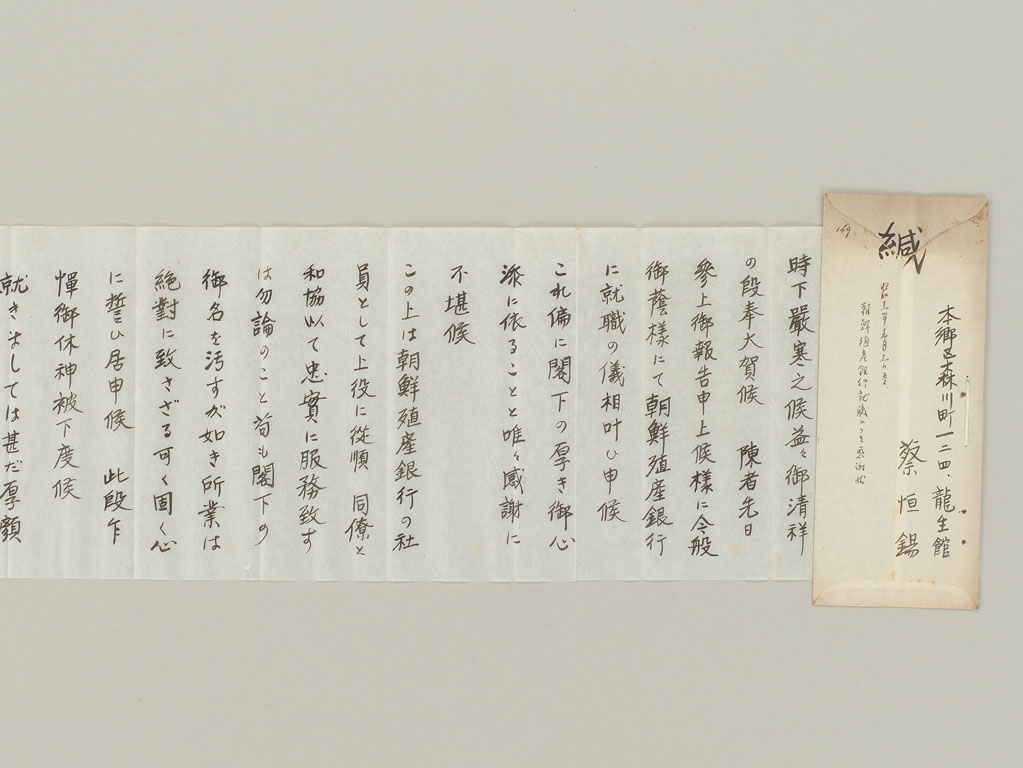 本郷区森川町一二四、龍生館
蔡恒錫
緘
169
朝鮮殖産銀行就職のうえ感謝状
時下嚴寒之候益々御清祥
の段奉大賀候 陳者先日
參上御報告申上候様に今般
御蔭様にて朝鮮殖産銀行
に就職の儀相叶ひ申候
これ偏に閣下の厚き御心
添に依ることと唯々感謝に
不堪候
この上は朝鮮殖産銀行の社
員として上役に從順 同僚と
和協以て忠實に服務致す
は勿論のこと苟も閣下の
御名を汚すが如き所業は
絶對に致さざる可く固く心
に誓ひ居申候 此段乍
憚御休神被下度候
就きましては甚だ厚顔